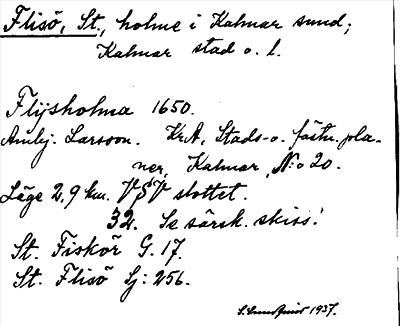 Flisö, St., holme i Kalmar sund;
Kalmar stad o. l.
Flijsholma 1650.
Ambj. Larsson. Kr.A. Stads- o. fästn. pla-
ner, Kalmar, No 20.
Läge 2,9 km. VSV slottet.
32. Se särsk. skiss!
St. Fiskör G. 17.
St. Flisö Sj: 256.
S. Lundqvist 1937.